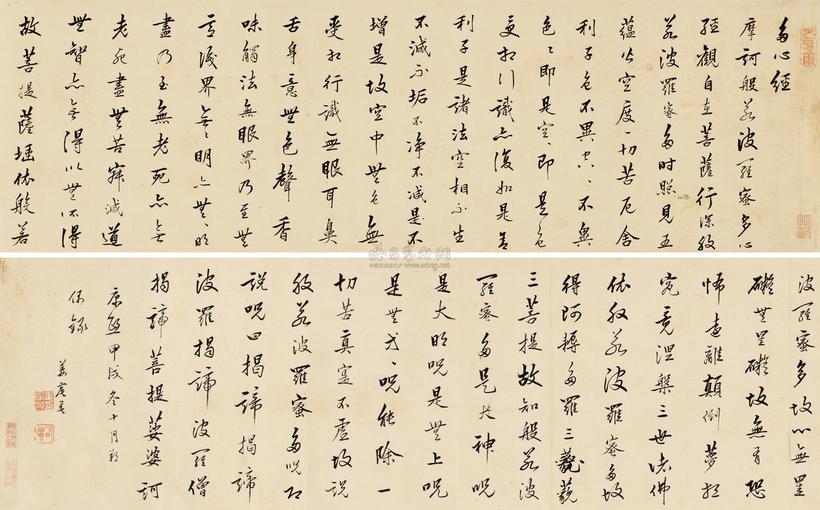 多心經
摩訶般若波羅蜜多心
經觀自在菩薩行深般
若波羅蜜多時照見五
蘊皆空度一切苦厄舍
利子色不異空空不異
色色即是空空即是色
受想行識亦復如是舍
利子是諸法空相不生
不滅不垢不净不減是不
增是故空中無色無
受想行識無眼耳鼻
舌身意無色聲香
味觸法無眼界乃至無
意識界無無明亦無無明
盡乃至無老死亦無
老死盡無苦寂滅道
無智亦無得以無所得
故菩提薩埵依般若
波羅蜜多故心無罣
礙無罣礙故無有恐
怖遠離顛倒夢想
究竟涅槃三世諸佛
依般若波羅蜜多故
得阿耨多羅三藐
三菩提故知般若波
羅蜜多是大神呪
是大明呪是無上呪
是無等呪能除一
切苦真實不虛故說
般若波羅蜜多呪即
說呪曰揭諦揭諦
波羅揭諦波羅僧
揭諦菩提薩婆訶
康熙甲戌冬十月